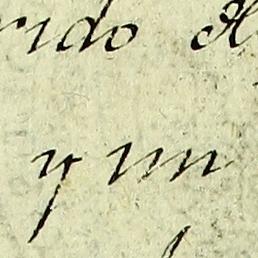 rido
y un